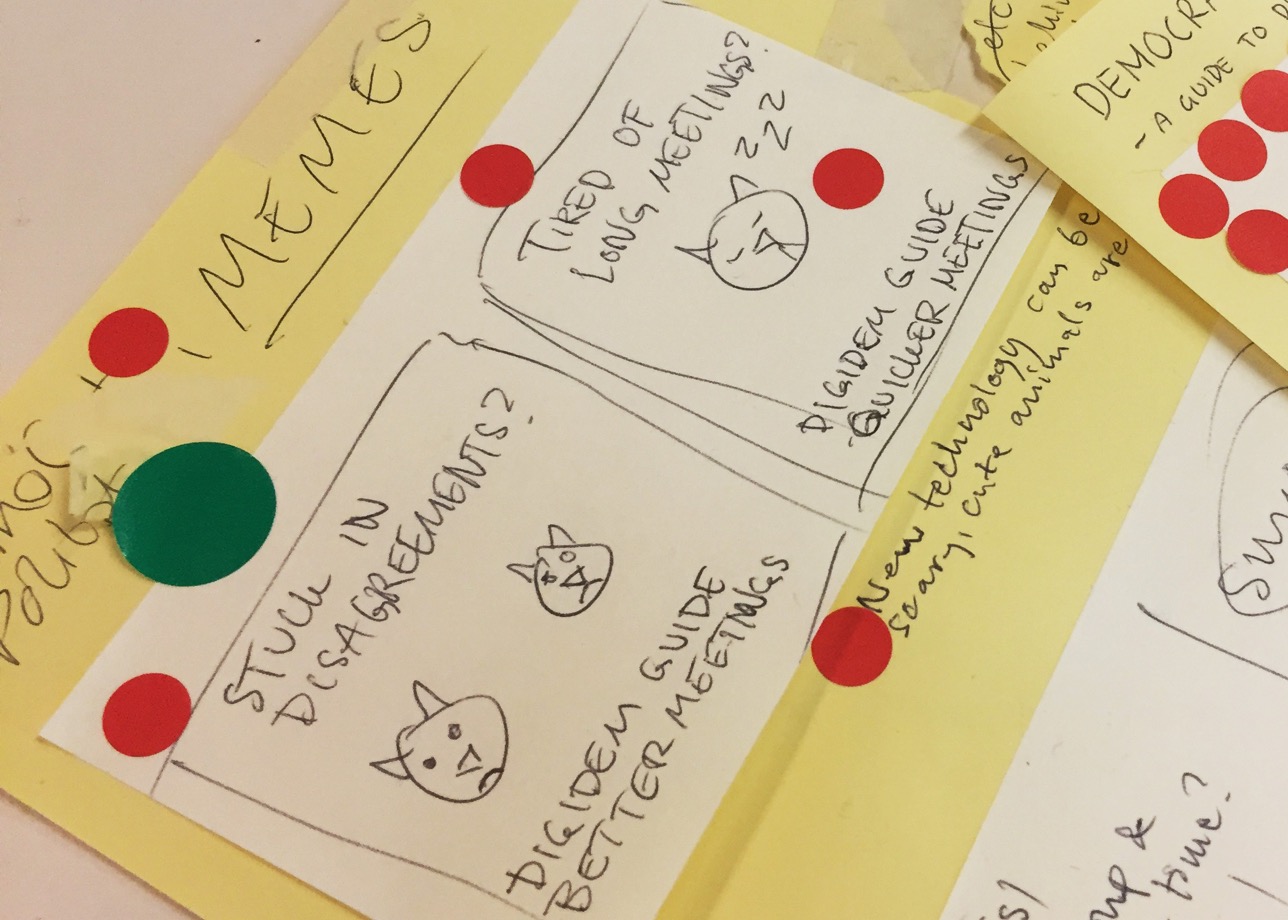 MEMES
TIRED OF
LONG MEETINGS?
ZZZ
DIGIDEM GUIDE
QUICKER MEETINGS
STUCK IN
DISAGREEMENTS?
DIGIDEM GUIDE
BETTER MEETINGS
New technology can be
scary, cute animals are
etc
DEMOCRA
- A GUIDE TO D
&
time?